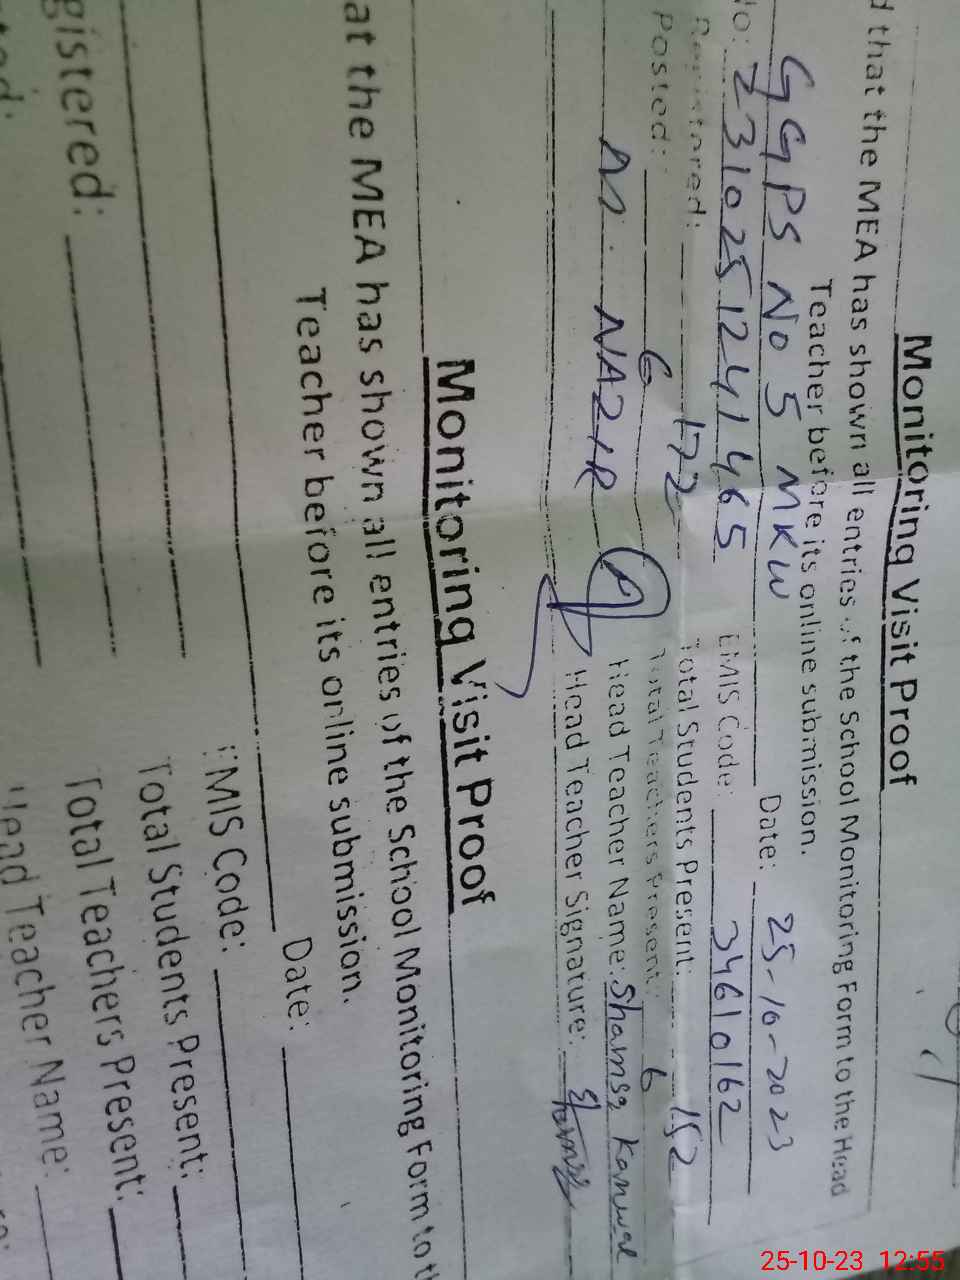 Monitoring Visit Proof
d that the MEA has shown all entries of the School Monitoring Form to the Head
Teacher before its online submission.
GGPS No 5 MKW Date: 25-10-2023
No: 2310251241465 EMIS Code: 34610162
Registered: 172 Total Students Present: 152
Posted: 6 Total Teachers Present: 6
M. NAZIR Head Teacher Name: Shamsa Kanwal
Head Teacher Signature:
Monitoring Visit Proof
at the MEA has shown all entries of the School Monitoring Form to th
Teacher before its online submission.
Date:
EMIS Code:
Total Students Present:
gistered: Total Teachers Present:
Head Teacher Name:
25-10-23 12:55